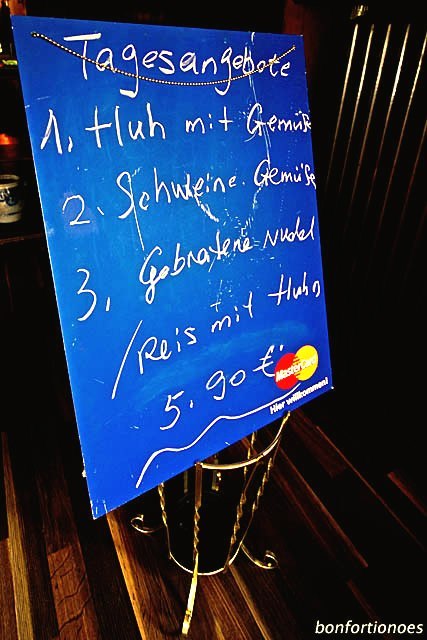 Tagesangebote
1. Huh mit Gemüße
2. Schweine. Gemüße
3. Gebratene Nudel
/Reis mit Huhn
5.90 €
MasterCard
Hier willkommen!
bonfortionoes